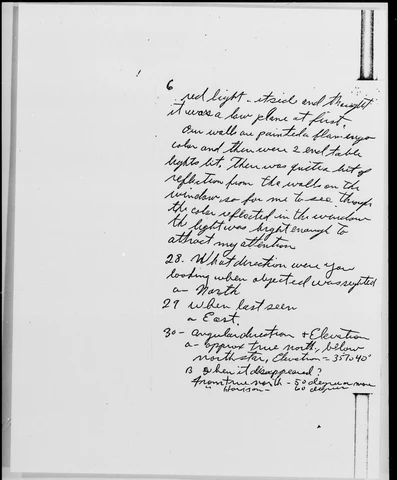 6
red light - itside and thought
it was a low plane at first.
Our walls are painted a flamingo
color and there were 2 end table
lights lit. There was quite a bit of
reflection from the walls on the
window, so for me to see through
the color reflected in the window
the light was bright enough to
attract my attention
28. What direction were you
looking when objected was sighted
a- North
29 when last seen
a East.
30- angular direction & Elevation
a- approx true north, below
north star, Elevation = 35 to 40°
B when it disappeared?
From true north - 50 degrees or more
" Horison - 60 degrees